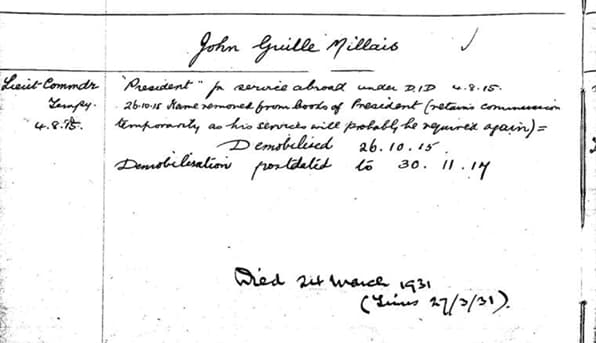 John Guille Millais
Lieut-Commdr "President" for service abroad under D.I.D 4.8.15.
Tempy. 26.10.15 Name removed from books of President (retains commission
4.8.15. temporarily as his services will probably be required again) =
Demobilised 26.10.15.
Demobilisation postdated to 30.11.17
Died 24 March 1931
(Times 27/3/31).